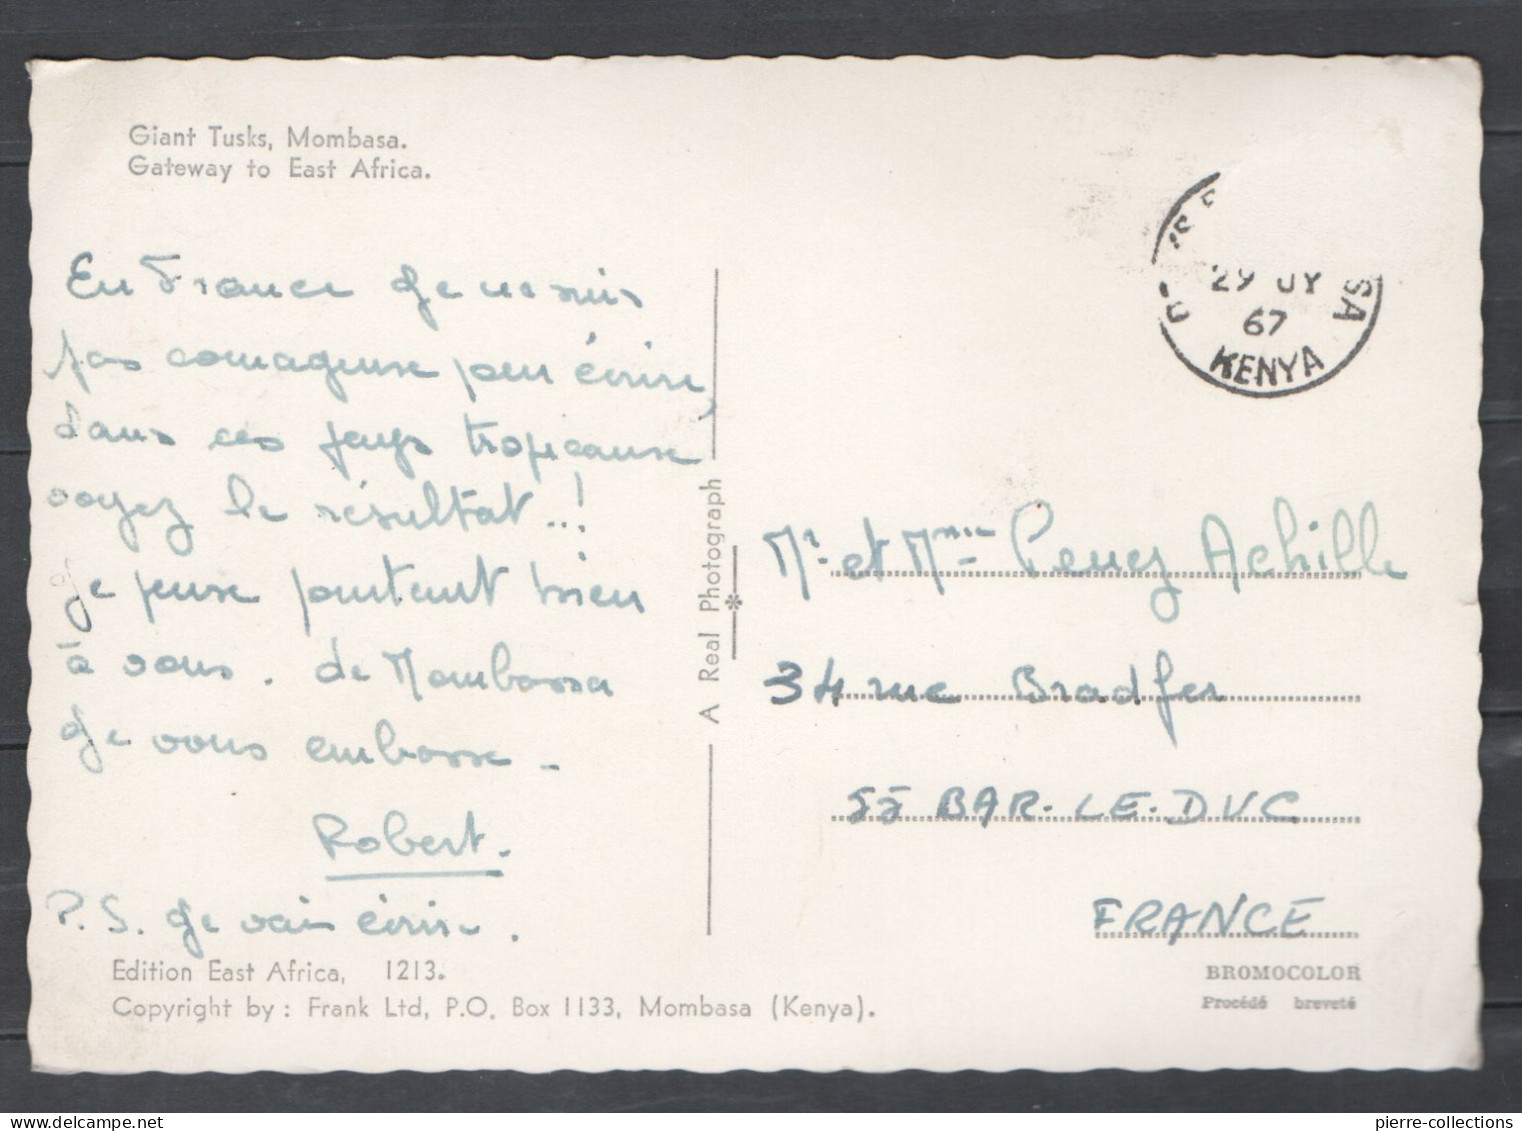 Giant Tusks, Mombasa.
Gateway to East Africa.
En France je ne suis
pas courageuse pour écrire,
dans ces pays tropicaux
voyez le résultat...!
Je pense pourtant bien
à vous. de Mombassa
Je vous embrasse -
Robert.
P.S. Je vais écrire.
Edition East Africa, 1213.
Copyright by: Frank Ltd, P.O. Box 1133, Mombasa (Kenya).
A Real Photograph
29 JY
67
SA
KENYA
Mr et Mme Achille
34 rue Bradfer
55 BAR-LE-DUC
FRANCE
BROMOCOLOR
Procédé breveté
pierre-collections